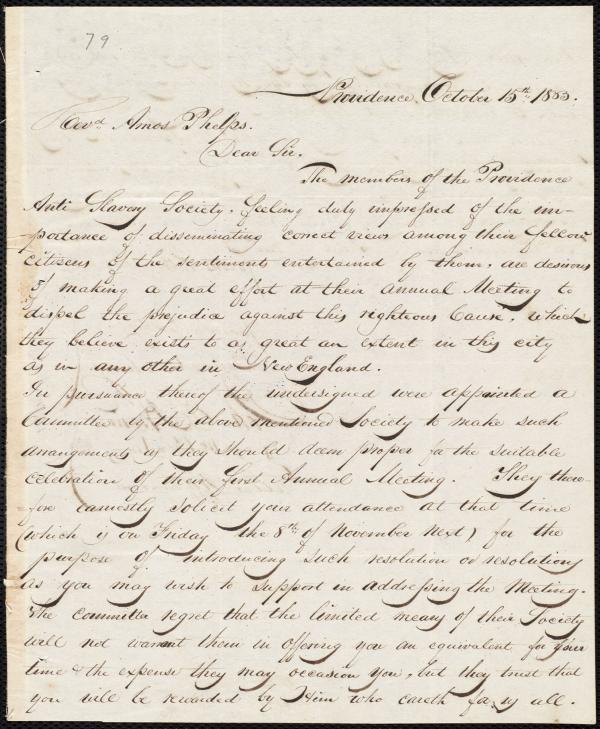 79
Providence, October 15th 1833.
Revd Amos Phelps.
Dear Sir.
The members of the Providence
Anti Slavery Society, feeling duly impressed of the im-
portance of disseminating correct views among their fellow
citizens of the sentiments entertained by them, are desirous
of making a great effort at their annual Meeting to
dispel the prejudice against this righteous Cause, which
they believe exists to as great an extent in this city
as in any other in New England.
In pursuance thereof the undersigned were appointed a
Committee by the above mentioned Society to make such
arrangements as they should deem proper for the suitable
celebration of their first Annual Meeting. They there-
fore earnestly solicit your attendance at that time
(which is on Friday the 8th of November next) for the
purpose of introducing such resolution or resolutions
as you may wish to support in addressing the Meeting.
The Committee regret that the limited means of their Society
will not warrant them in offering you an equivalent for your
time & the expense they may occasion you, but they trust that
you will be rewarded by Him who careth for us all.